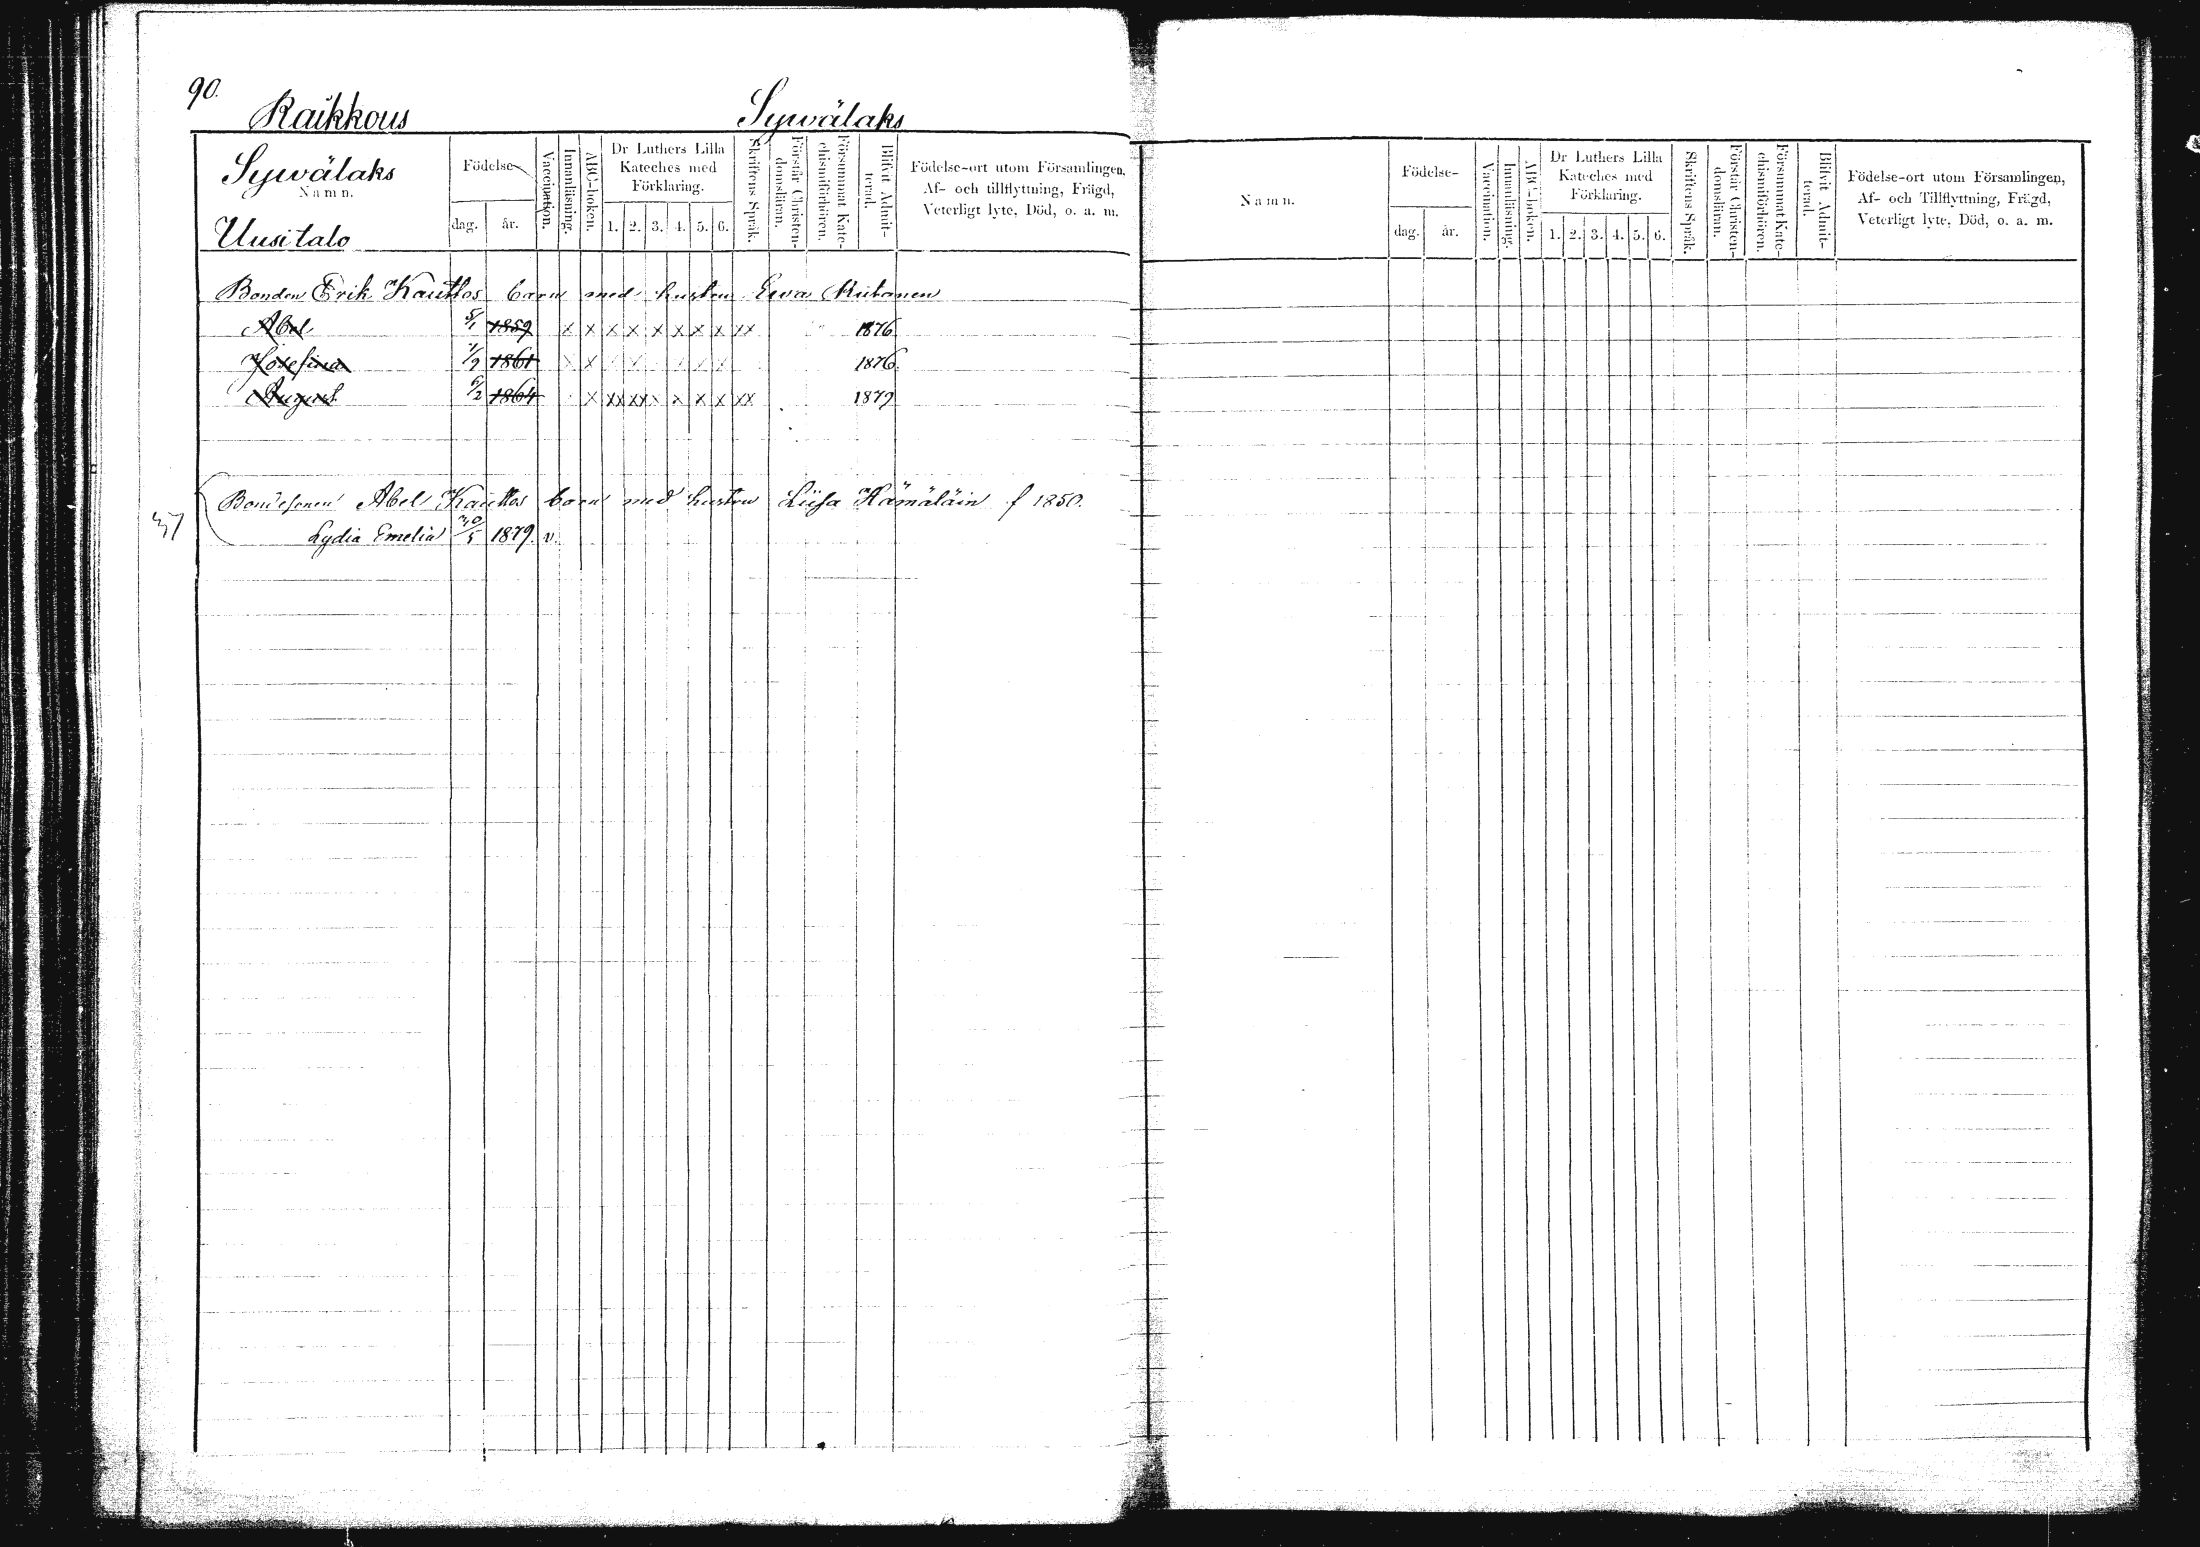 90.
Raikkous Sywälaks
Sywälaks
Namn.
Uusitalo
Födelse-
dag. år.
Vaccination.
Innanläsning.
ABC-boken.
Dr Luthers Lilla
Kateches med
Förklaring.
1. 2. 3. 4. 5. 6.
Skriftens Språk.
Förstår Christen-
domsläran.
Försummat Kate-
chismiförhören.
Blifvit Admit-
terad.
Födelse-ort utom Församlingen,
Af- och tillflyttning, Frägd,
Veterligt lyte, Död, o. a. m.
Bonden Erik Kauttos barn med hustru Ewa
Abel 5/1 1859 x x x x x x x x xx 1876
Josefina 1/9 1861 x x x x x x x x 1876.
August 6/2 1864 x xx xx x x x x xx 1879
Bondesonen Abel Kauttos barn med hustru Liisa Hämäläin f 1850.
37
Lydia Emelia 30/5 1879. v.
Namn.
Födelse-
dag. år.
Vaccination.
Innanläsning.
ABC-boken.
Dr Luthers Lilla
Kateches med
Förklaring.
1. 2. 3. 4. 5. 6.
Skriftens Språk.
Förstår Christen-
domsläran.
Försummat Kate-
chismiförhören.
Blifvit Admit-
terad.
Födelse-ort utom Församlingen,
Af- och Tillflyttning, Frägd,
Veterligt lyte, Död, o. a. m.